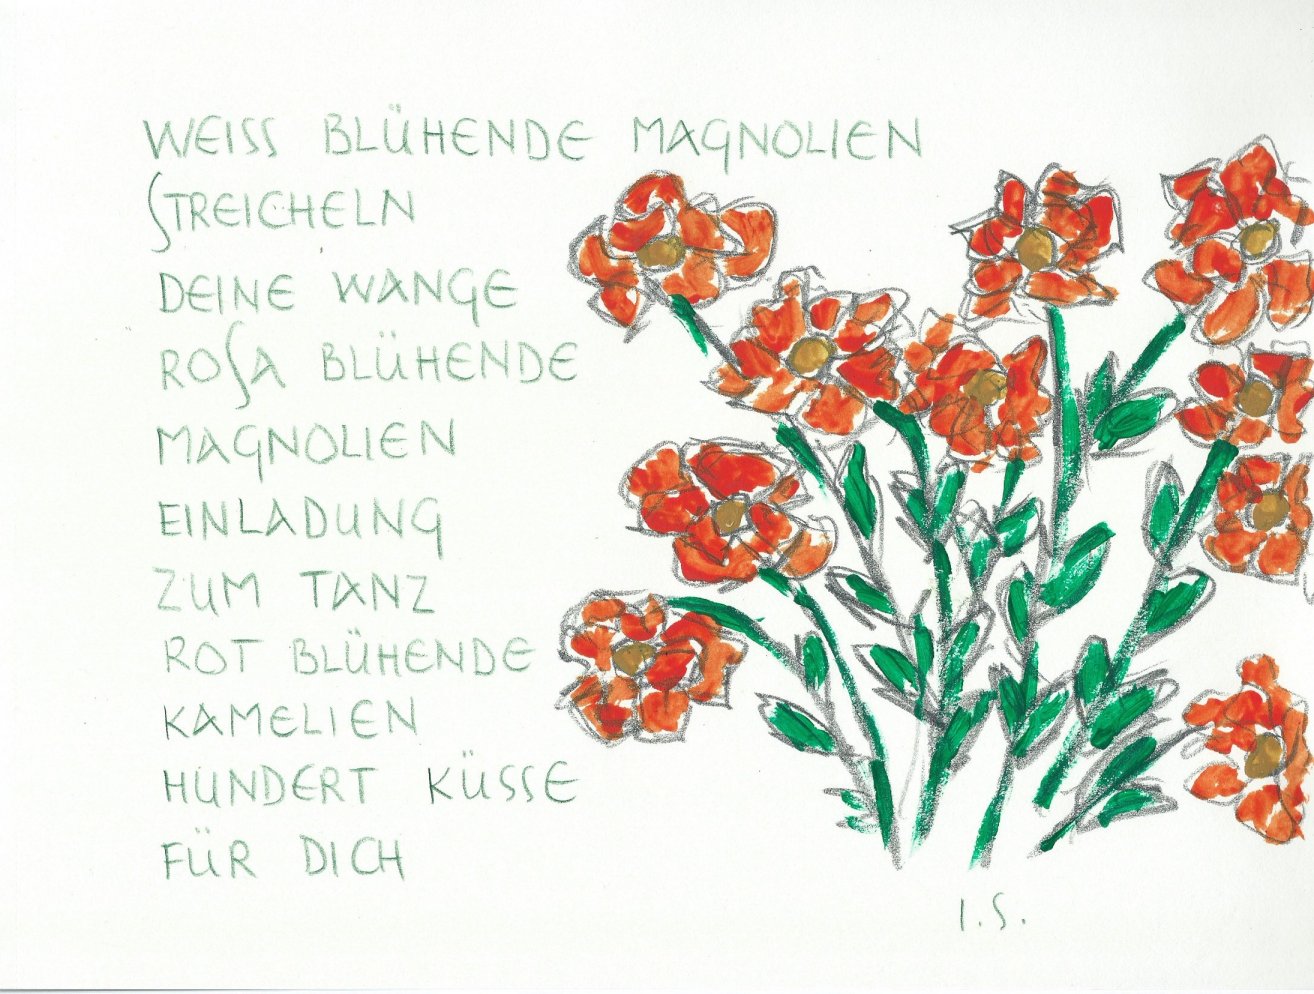 WEISS BLÜHENDE MAGNOLIEN
STREICHELN
DEINE WANGE
ROSA BLÜHENDE
MAGNOLIEN
EINLADUNG
ZUM TANZ
ROT BLÜHENDE
KAMELIEN
HUNDERT KÜSSE
FÜR DICH
I.S.